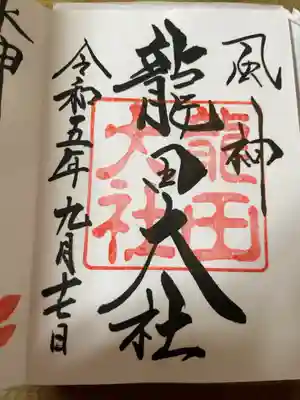 風神
龍田大社
龍田
大社
令和五年九月十七日
水神